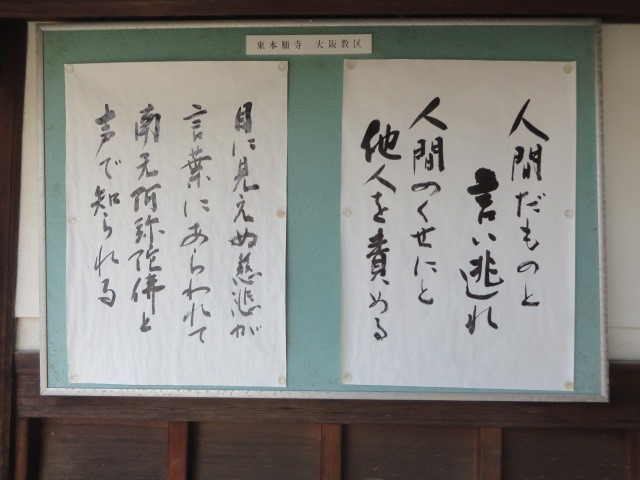 東本願寺 大阪教区
人間だものと
言い逃れ
人間のくせにと
他人を責める
目に見えぬ慈悲が
言葉にあらわれて
南无阿弥陀佛と
声で知られる